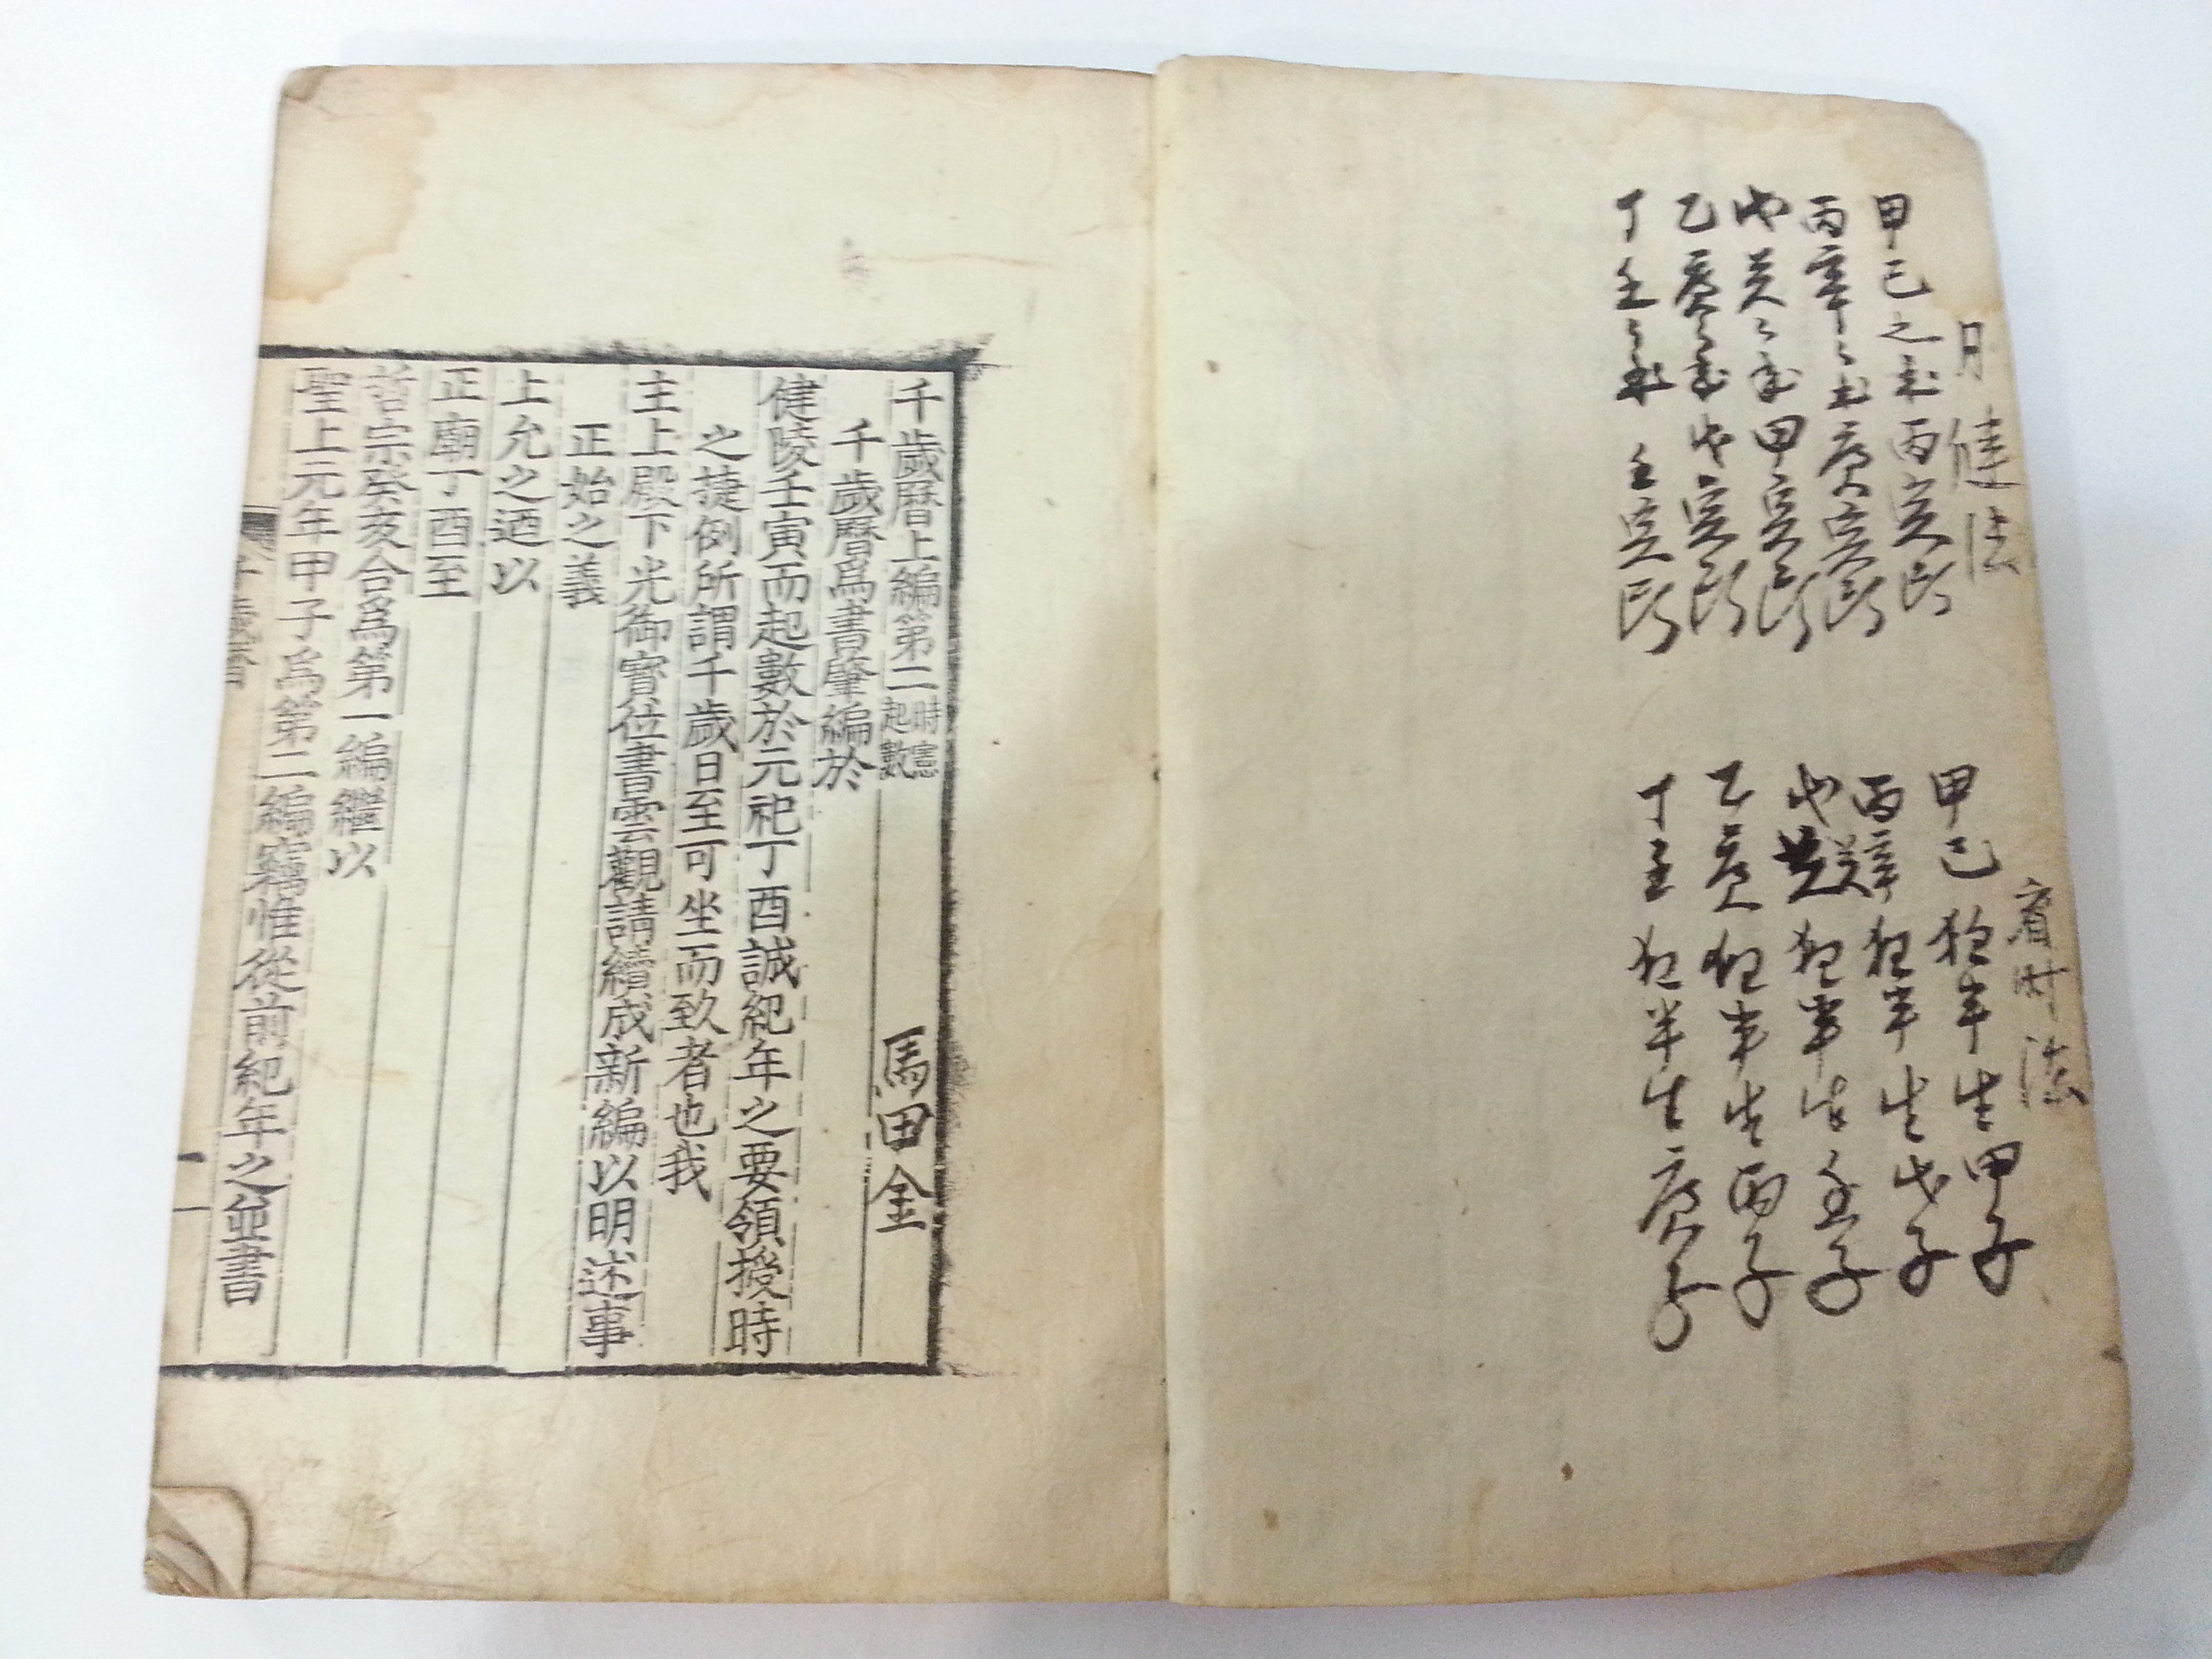 月健法
甲己之年丙寅頭
丙辛〻年庚寅頭
戊癸〻年甲寅頭
乙庚〻年戊寅頭
丁壬〻年壬寅頭
看时法
甲己夜半生甲子
丙辛夜半生戊子
戊癸夜半生壬子
乙庚夜半生丙子
丁壬夜半生庚子
千歲曆上編第二 時憲起數 馬田金
千歲曆爲書肇編於
健陵壬寅而起數於元祀丁酉誠紀年之要領授時
之捷例所謂千歲日至可坐而致者也我
主上殿下光御寶位書雲觀請續成新編以明述事
正始之義
上允之迺以
正廟丁酉至
哲宗癸亥合爲第一編繼以
聖上元年甲子爲第二編竊惟從前紀年之並書
千歲曆
一